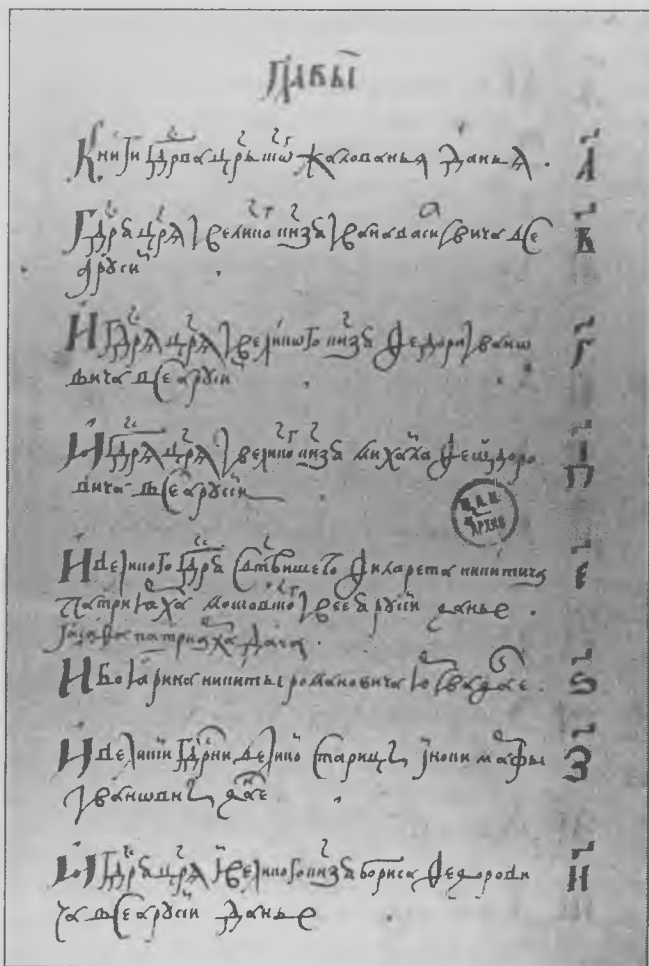 Главы
Книги Гдрва црьскѡ жалованья данья . А
Гдря црѧ i великого кнзѧ Iвана васильевича все В
ѧ русии
И Гдря црѧ i великого кнзѧ Федора Iванѡ Г
вича всеа русии
И Гдря црѧ i великого кнзѧ михаила Феѡдоро
вича всеа русии
И великого Гдря Ствишего Филарета никитича Е
патриарха московского i всеа русии данье .
Иасафа патриарха дача .
И Боѧрина никиты романовича Ѕ
И великия Гдрни великой старицы iноки марфы З
Iвановны данье
И Гдря црѧ i великого кнзѧ бориса Федорови И
ча всеа русии данье
Ц.А.Н.
АРХИВ